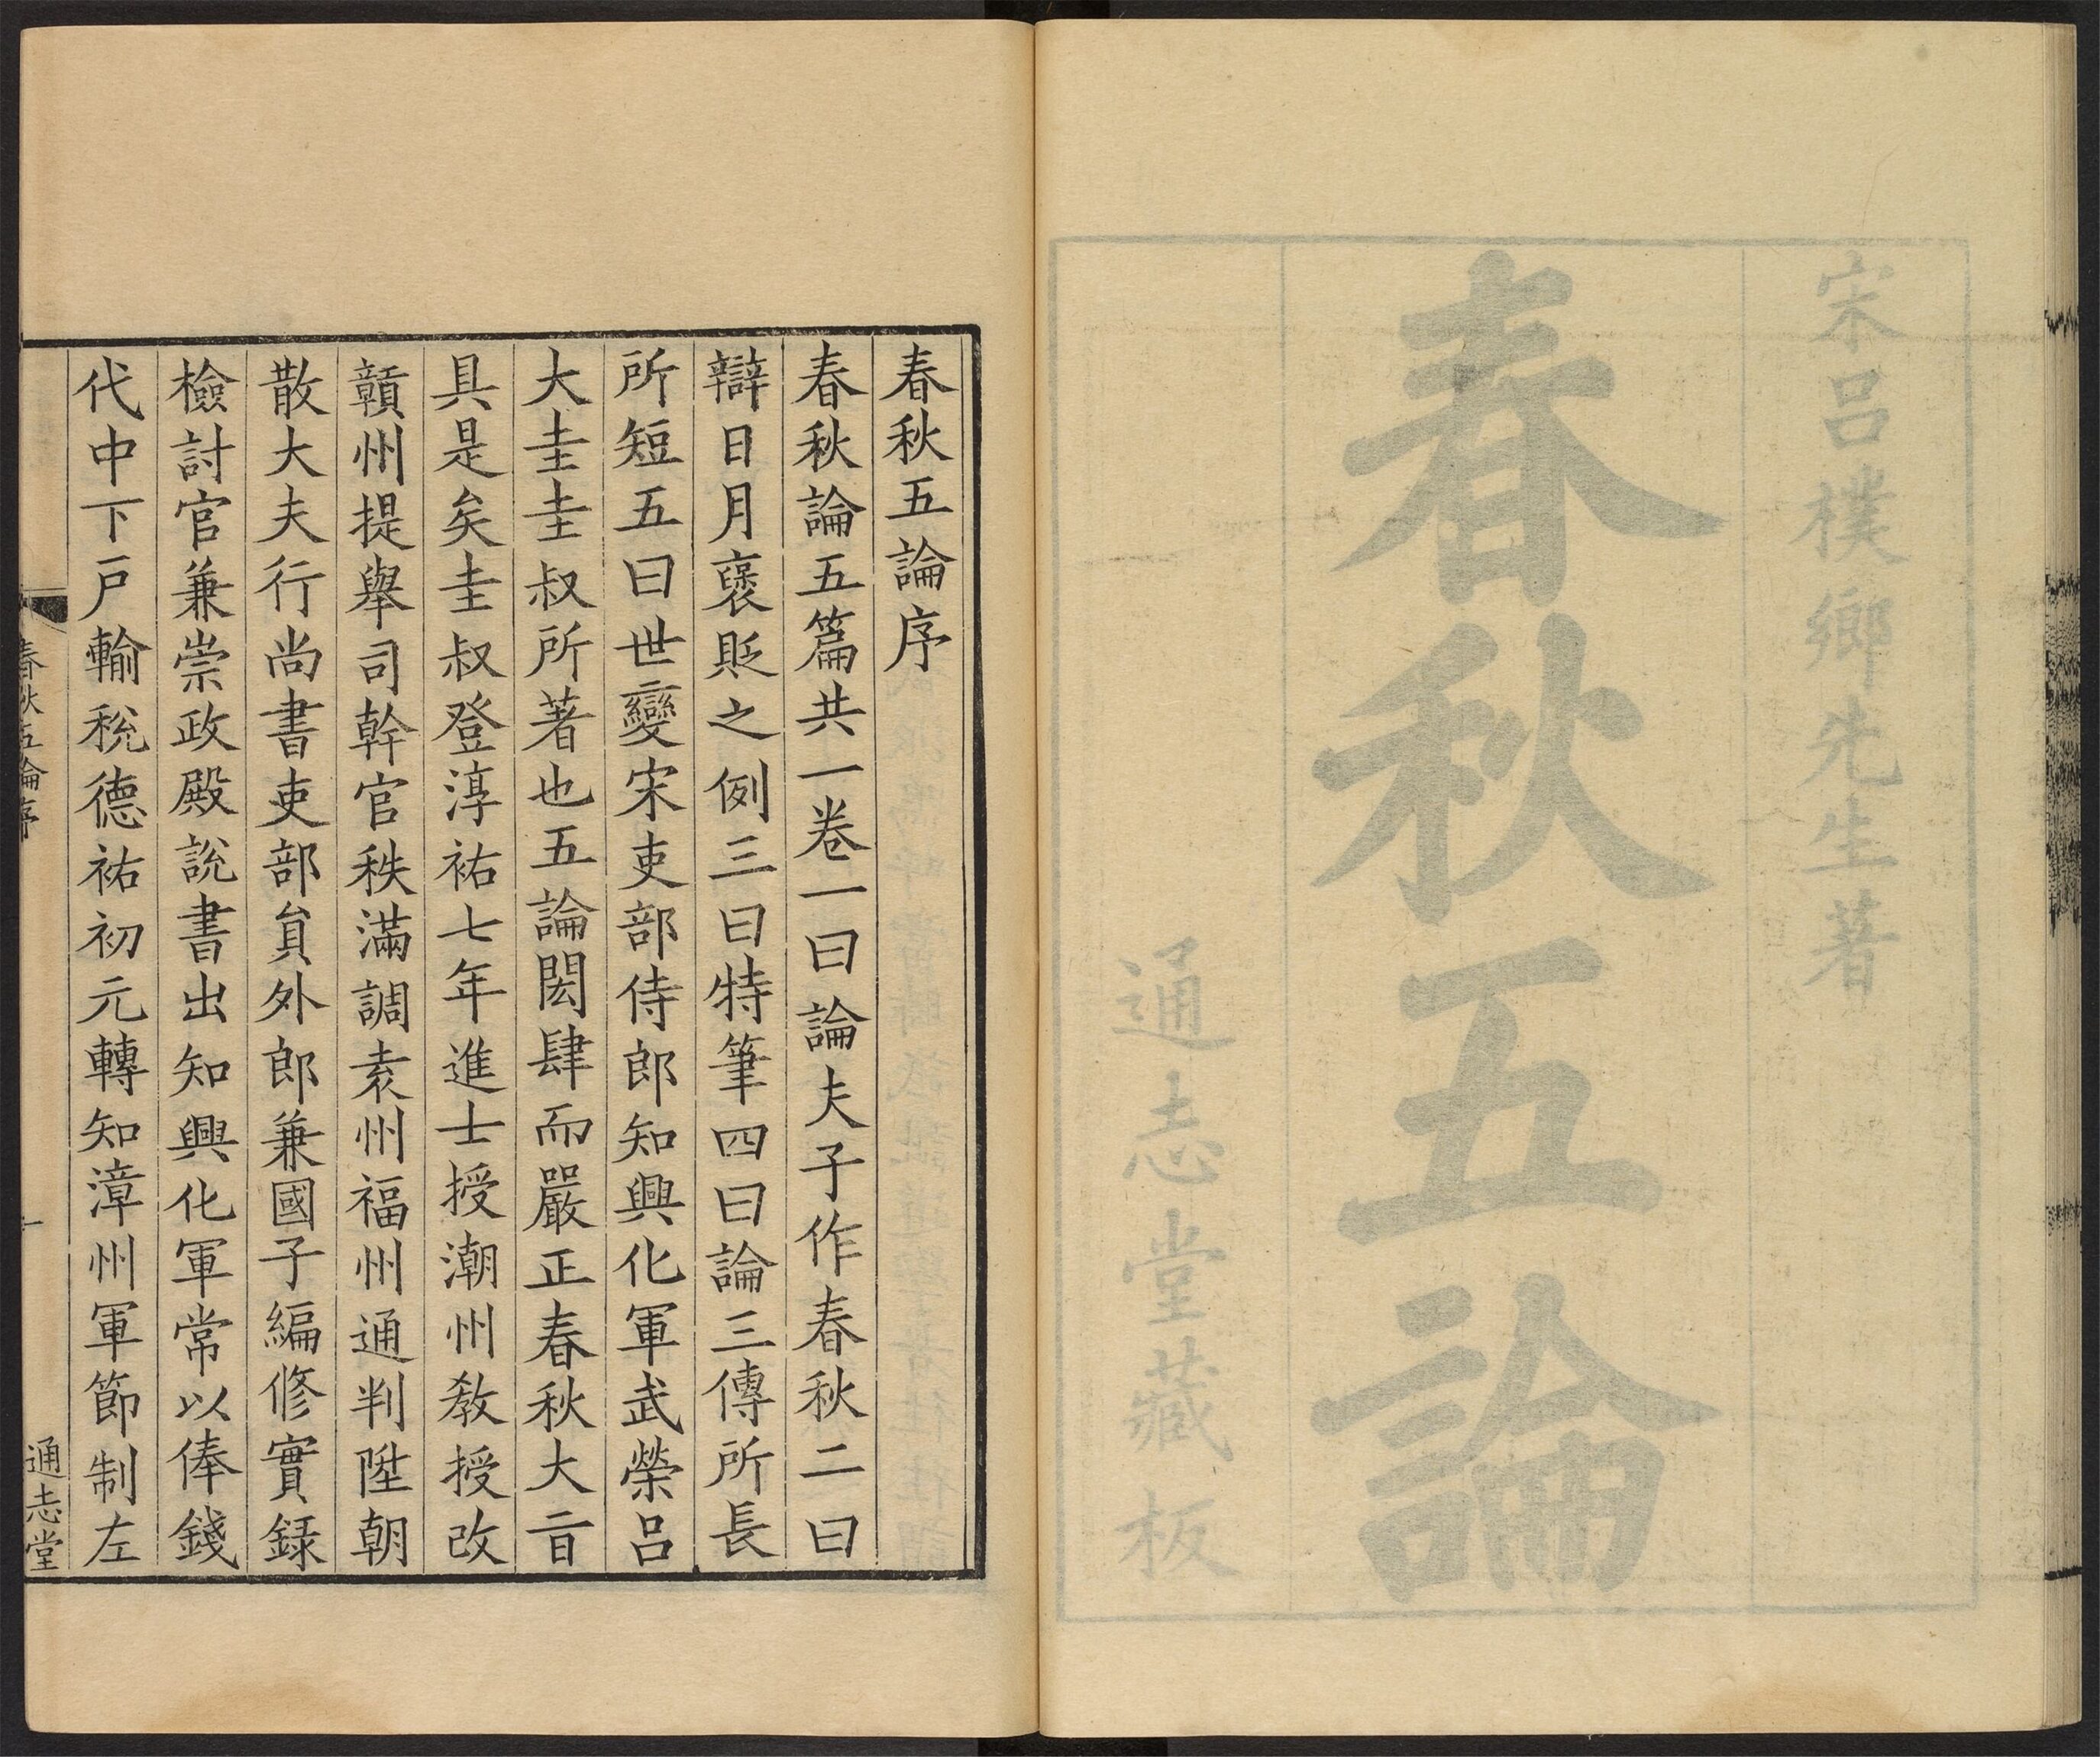 宋呂樸鄉先生著
春秋五論
通志堂藏板
春秋五論序
春秋論五篇共一卷一曰論夫子作春秋二曰
辯日月褒貶之例三曰特筆四曰論三傳所長
所短五曰世變宋吏部侍郎知興化軍武榮呂
大圭圭叔所著也五論閎肆而嚴正春秋大㫖
具是矣圭叔登淳祐七年進士授潮州教授改
贛州提舉司幹官秩滿調袁州福州通判陞朝
散大夫行尚書吏部員外郎兼國子編修實録
檢討官兼崇政殿說書出知興化軍常以俸錢
代中下戶輸稅德祐初元轉知漳州軍節制左
春秋五論序
一
通志堂